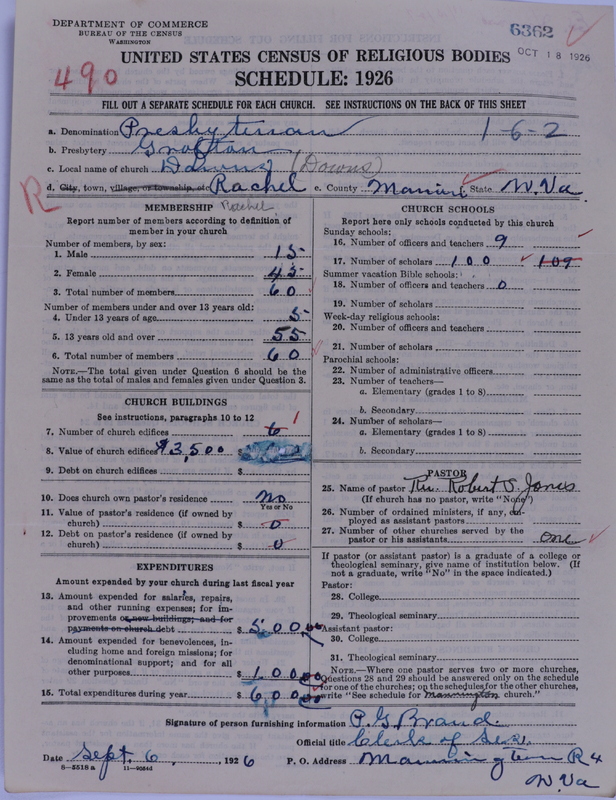 DEPARTMENT OF COMMERCE
BUREAU OF THE CENSUS
WASHINGTON
6362
OCT 18 1926
UNITED STATES CENSUS OF RELIGIOUS BODIES
490
SCHEDULE: 1926
FILL OUT A SEPARATE SCHEDULE FOR EACH CHURCH. SEE INSTRUCTIONS ON THE BACK OF THIS SHEET
a. Denomination Presbyterian 1-6-2
b. Presbytery Grafton
c. Local name of church Downs (Downs)
R
d. City, town, village, or township, etc. Rachel e. County Marion State W. Va
MEMBERSHIP Rachel
Report number of members according to definition of
member in your church
Number of members, by sex:
1. Male 15
2. Female 45
3. Total number of members 60
Number of members under and over 13 years old:
4. Under 13 years of age 5
5. 13 years old and over 55
6. Total number of members 60
NOTE.—The total given under Question 6 should be
the same as the total of males and females given under Question 3.
CHURCH BUILDINGS
See instructions, paragraphs 10 to 12
7. Number of church edifices 1
8. Value of church edifices $3,500 $
9. Debt on church edifices $
10. Does church own pastor's residence No
Yes or No
11. Value of pastor's residence (if owned by
church) $ 0
12. Debt on pastor's residence (if owned by
church) $ 0
EXPENDITURES
Amount expended by your church during last fiscal year
13. Amount expended for salaries, repairs,
and other running expenses; for im-
provements or new buildings; and for
payments on church debt $ 500.00
14. Amount expended for benevolences, in-
cluding home and foreign missions; for
denominational support; and for all
other purposes $ 100.00
15. Total expenditures during year $ 600.00
CHURCH SCHOOLS
Report here only schools conducted by this church
Sunday schools:
16. Number of officers and teachers 9
17. Number of scholars 100 109
Summer vacation Bible schools:
18. Number of officers and teachers 0
19. Number of scholars
Week-day religious schools:
20. Number of officers and teachers
21. Number of scholars
Parochial schools:
22. Number of administrative officers
23. Number of teachers—
a. Elementary (grades 1 to 8)
b. Secondary
24. Number of scholars—
a. Elementary (grades 1 to 8)
b. Secondary
PASTOR
25. Name of pastor Rev. Robert S. Jones
(If church has no pastor, write "None")
26. Number of ordained ministers, if any, em-
ployed as assistant pastors
27. Number of other churches served by the
pastor or his assistants one
If pastor (or assistant pastor) is a graduate of a college or
theological seminary, give name of institution below. (If
not a graduate, write "No" in the space indicated.)
Pastor:
28. College
29. Theological seminary
Assistant pastor:
30. College
31. Theological seminary
NOTE.—Where one pastor serves two or more churches,
Questions 28 and 29 should be answered only on the schedule
for one of the churches; on the schedules for the other churches,
write "See schedule for Mannington church."
Signature of person furnishing information P. G. Brand.
Official title Clerk of Ses.
Date Sept. 6, 1926 P. O. Address Mannington R 4
8-5518 a 11-9084d W. Va